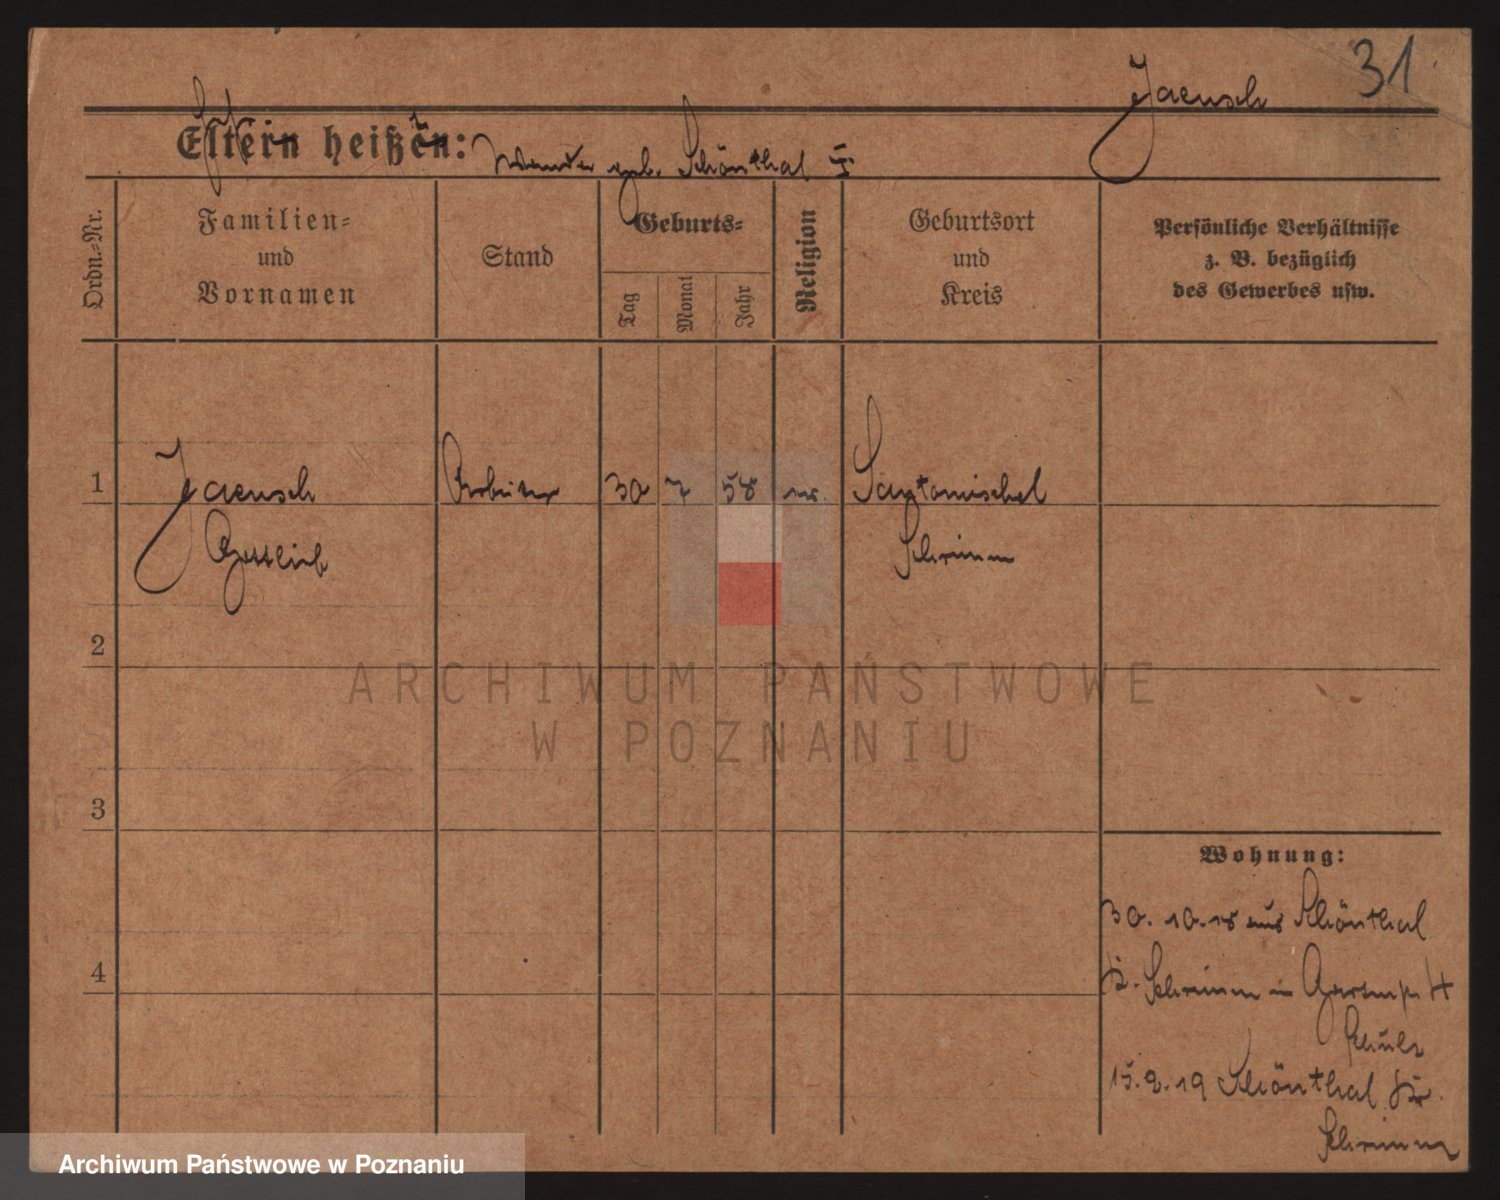 31
Jaensch
Eltern heißen:
geb. Schönthal
Ordn.-Nr.
Familien-
und
Vornamen
Stand
Geburts-
Tag
Monat
Jahr
Religion
Geburtsort
und
Kreis
Persönliche Verhältnisse
z. B. bezüglich
des Gewerbes usw.
1
Jaensch
Arbeiter
30
7
58
ev.
Santomischel
Gottlieb
Schrimm
2
ARCHIWUM PAŃSTWOWE
W POZNANIU
3
Wohnung:
30. 10. 18 aus Schönthal
4
Kr. Schrimm in
Schulz
15. 2. 19 Schönthal Kr.
Schrimm
Archiwum Państwowe w Poznaniu